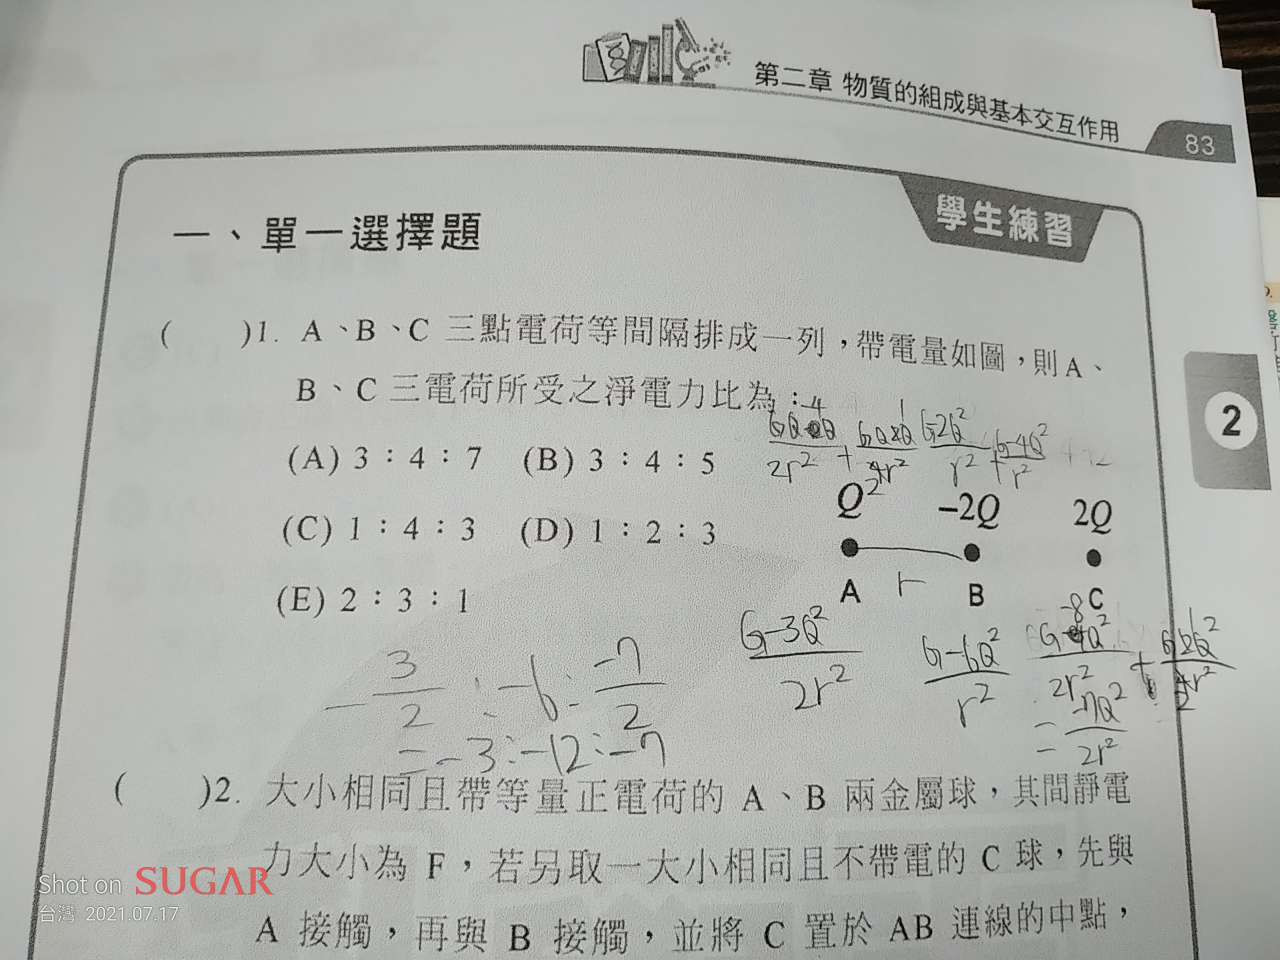 第二章 物質的組成與基本交互作用
83
學生練習
一、單一選擇題
( )1. A、B、C 三點電荷等間隔排成一列，帶電量如圖，則A、
B、C 三電荷所受之淨電力比為：
(A) 3：4：7 (B) 3：4：5
(C) 1：4：3 (D) 1：2：3
(E) 2：3：1
2
Q -2Q 2Q
A r B C
G-3Q²/2r² G-6Q²/r²
= -7Q²/2r²
-3/2 : -6 : -7/2
= -3:-12:-7
( )2. 大小相同且帶等量正電荷的 A、B 兩金屬球，其間靜電
力大小為 F，若另取一大小相同且不帶電的 C 球，先與
A 接觸，再與 B 接觸，並將 C 置於 AB 連線的中點，
Shot on SUGAR
台灣 2021.07.17